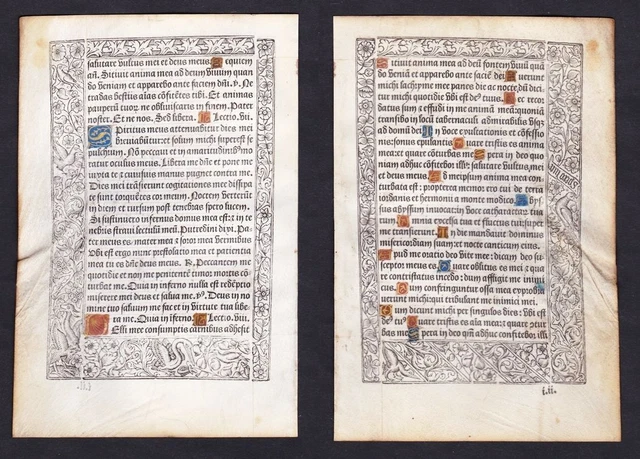 salutare vultus mei et deus meus. Requiem
añ. Sitivit anima mea ad deum vivum quan
do veniam et apparebo ante faciem dñi. ℣. Ne
tradas bestiis aīas cōfitētes tibi. Et animas
pauperū tuorꝝ ne obliviscaris in finem. Pater
noster. Et ne nos. Sed libera. Lectio .vii.
Spiritus meus attenuabitur dies mei
breviabūtur: et solum michi superest se
pulchrum. Nō peccavi et in amaritudinibꝰ mo
ratur oculus meus. Libera me dñe et pone me
iuxta te: et cuiusvis manus pugnet contra me.
Dies mei trāsierunt cogitationes mee dissipa
te sunt torquētes cor meum. Noctem verterūt
in diem et rursum post tenebras spero lucem.
Si sustinuero infernus domus mea est: et in te
nebris stravi lectulū meum. Putredini dixi. Pa
ter meus es: mater mea et soror mea vermibus
Ubi est ergo nunc prestolatio mea et patientia
mea tu es dñe deus meus. ℟. Peccantem me
quotidie et non me penitentē timor mortis cō
turbat me. Quia in inferno nulla est redēptio
miserere mei deus et salva me. ℣. Deus in no
mine tuo salvum me fac et in virtute tua libe
ra me. Quia in inferno. Lectio .viii.
Pelli mee consumptis carnibus adhesit
Sitivit anima mea ad deū fontem vivū quā
do veniā et apparebo ante faciē dei. Fuerunt
michi lachryme mee panes die ac nocte: dū dici
tur michi quotidie ubi est deꝰ tuus. Hec recor
datus sum et effudi in me animā mea: quoniā
transibo in locū tabernaculi admirabilis usqꝫ
ad domū dei. In voce exultationis et cōfessio
nis: sonus epulantis. Quare tristis es anima
mea: et quare cōturbas me. Spera in deo quo
niam adhuc cōfitebor illi: salutare vultus mei
et deus meus. Ad meipsum anima mea con
turbata est: propterea memor ero tui de terra
iordanis et hermonii a monte modico. Abys
sus abyssum invocat: in voce catharactarū tua
rum. Omnia excelsa tua et fluctus tui: super
me transierunt. In die mandavit dominus
misericordiam suam: et nocte canticum eius.
Apud me oratio deo vite mee: dicam deo su
sceptor meus es. Quare oblitus es mei et qua
re contristatus incedo: dum affligit me inimi
cus. Dum confringuntur ossa mea exprobra
verunt michi: qui tribulant me inimici mei.
Dum dicunt michi per singulos dies: ubi est
deꝰ tuꝰ. Quare tristis es aīa mea: et quare ɔtur
bas me. Spera in deo qm̄ adhuc confitebor illi
i.ii.